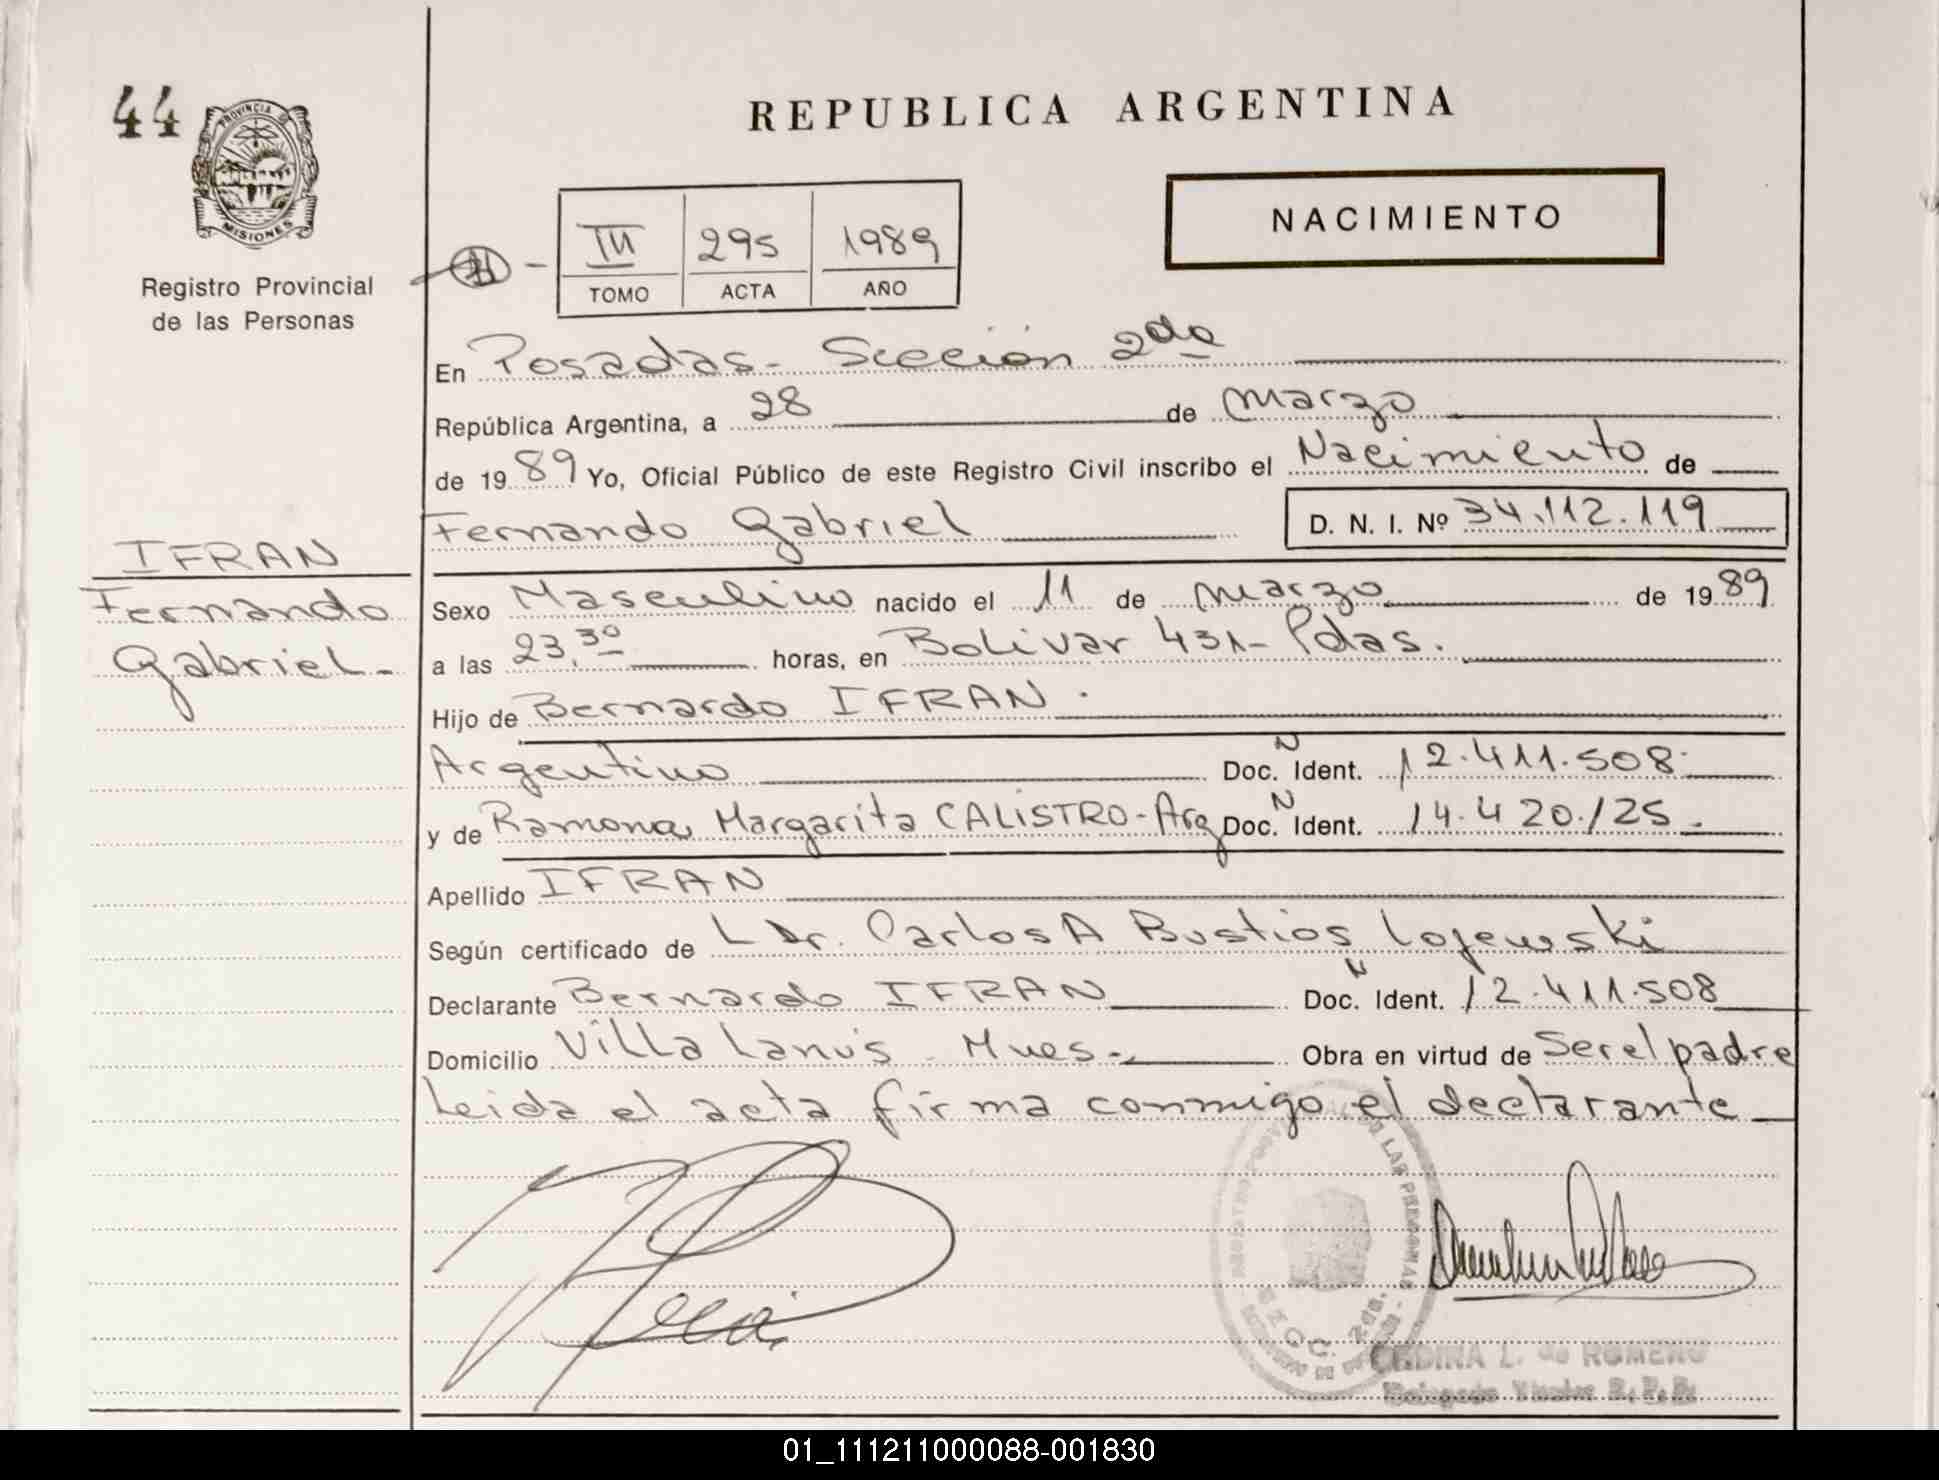 44
PROVINCIA DE
MISIONES
Registro Provincial
de las Personas
REPUBLICA ARGENTINA
NACIMIENTO
III 295 1989
TOMO ACTA AÑO
En Posadas - Sección 2da
República Argentina, a 28 de marzo
de 1989 Yo, Oficial Público de este Registro Civil inscribo el Nacimiento de
Fernando Gabriel D. N. I. Nº 34.112.119
IFRAN
Fernando
Gabriel -
Sexo Masculino nacido el 11 de marzo de 1989
a las 23,30 horas, en Bolivar 431 - Pdas.
Hijo de Bernardo IFRAN.
Argentino Doc. N Ident. 12.411.508
y de Ramona Margarita CALISTRO - Arg Doc. N Ident. 14.420.125.
Apellido IFRAN
Según certificado de L Dr. Carlos A Bustios Lojewski
Declarante Bernardo IFRAN Doc. N Ident. 12.411.508
Domicilio Villa Lanús - Mnes. Obra en virtud de Ser el padre
Leida el acta firma conmigo el declarante
LAS PERSONAS
SECC. 2da.
L. de ROMERO
01_111211000088-001830